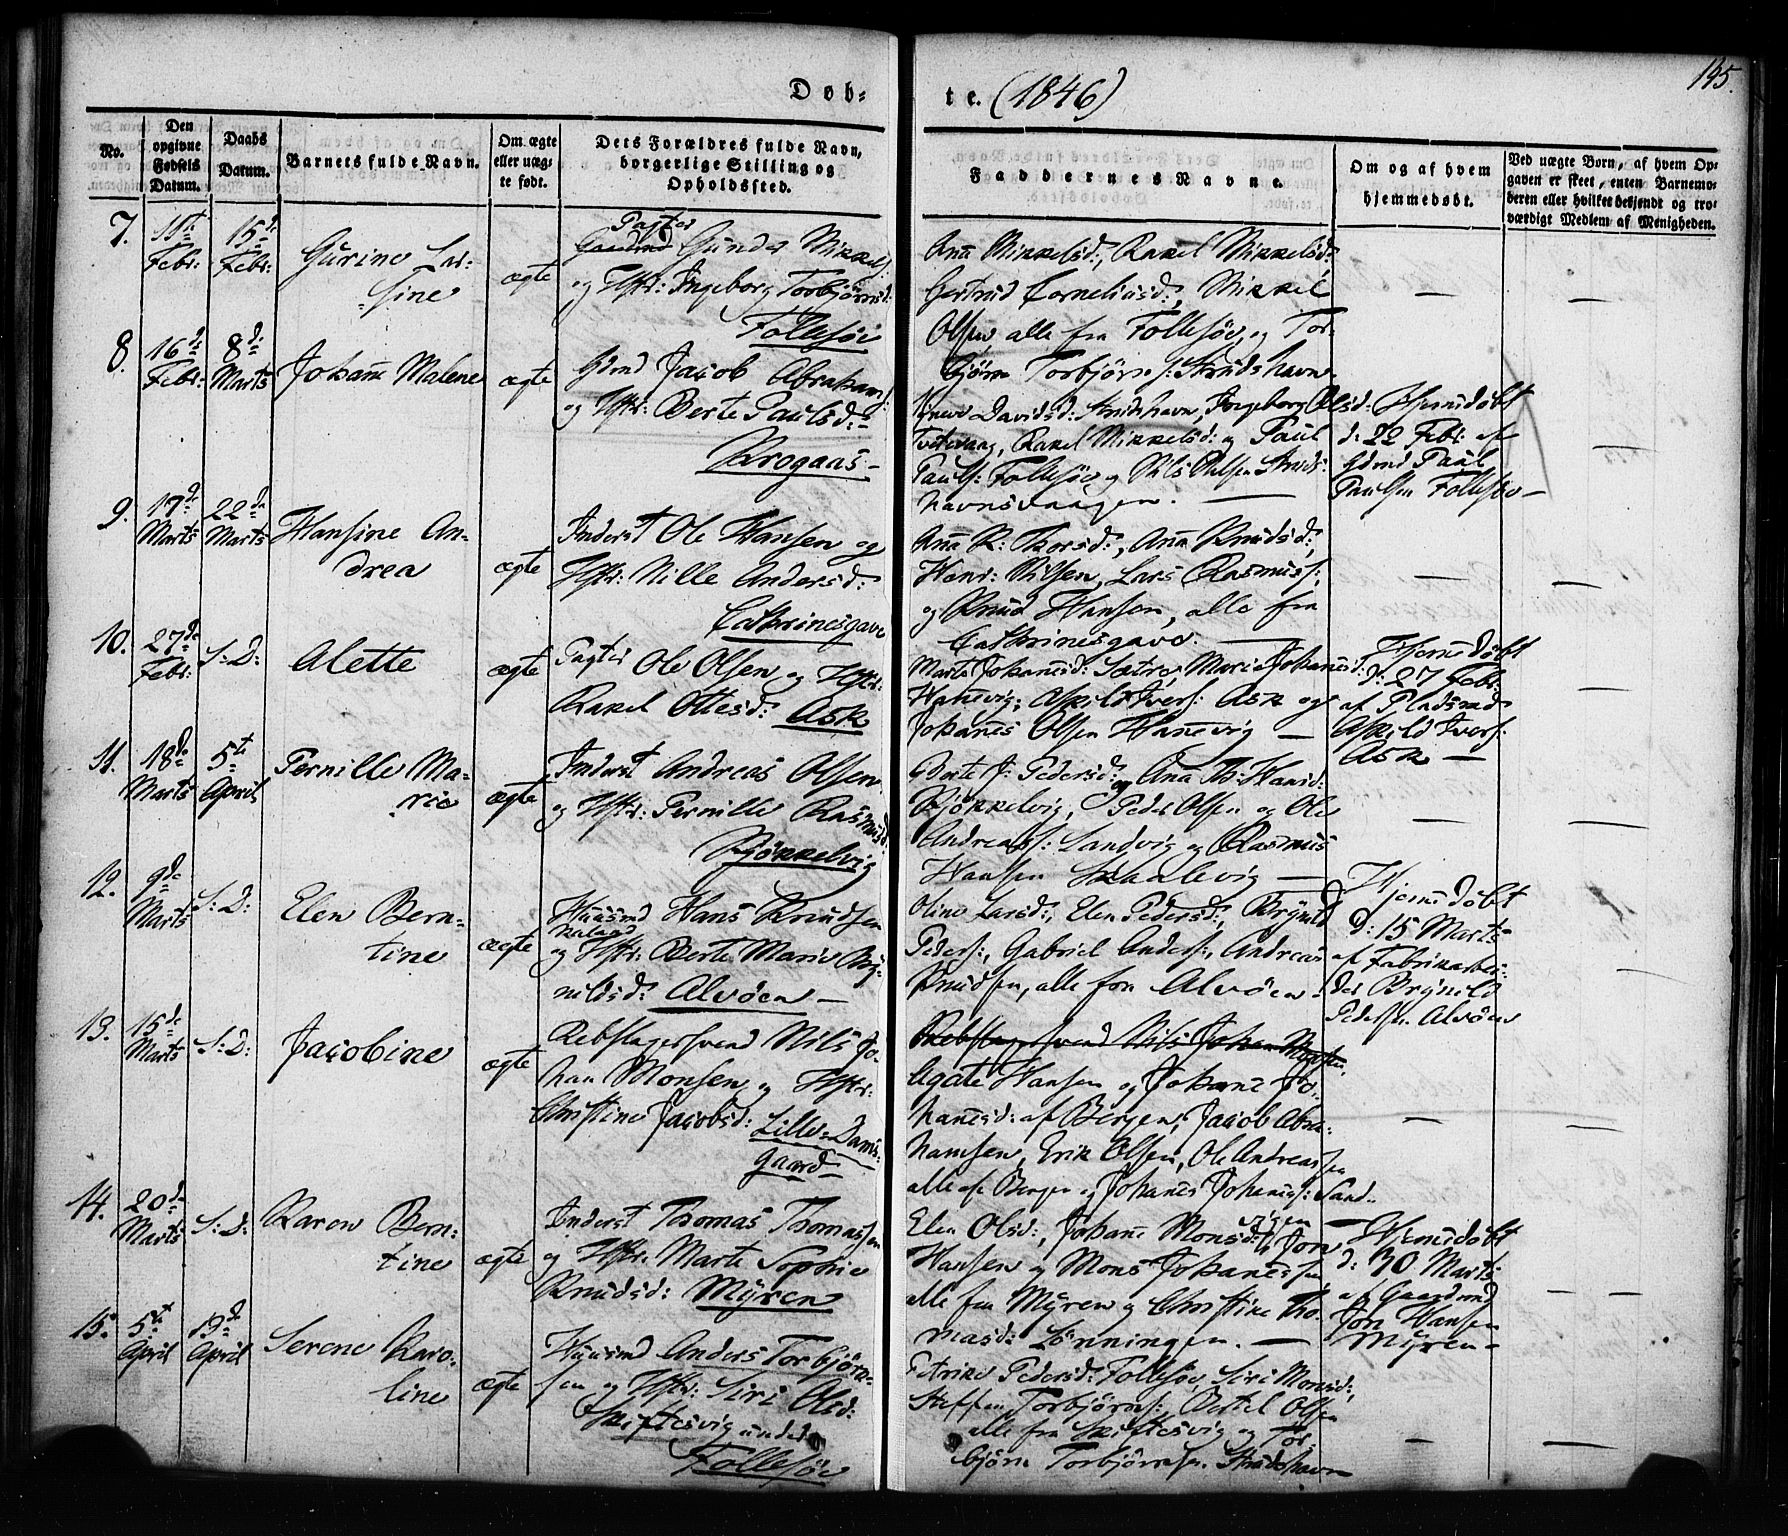 Døb-
te. (1846)
195.
No.
Den opgivne Fødsels Datum.
Daabs Datum.
Barnets fulde Navn.
Om ægte eller uægte født.
Dets Forældres fulde Navn, borgerlige Stilling og Opholdssted.
Faddernes Navne.
Om og af hvem hjemmedøbt.
Ved uægte Børn, af hvem Opgaven er skeet, enten Barnemoderen eller hvilket bekjendt og troværdigt Medlem af Menigheden.
7.
11te Febr:
15de Febr:
Gurine Lar-
sine
ægte
Pagter
Gunder Mikkels:
og Hstr: Ingeborg Torbjørnsd:
Follesøe
Ana Mikkelsd:, Rakel Mikkelsd:
Gertrud Corneliusd:, Mikkel
Olsen, alle fra Follesøe, og Tor-
bjørn Torbjørns: Strudshavn
—
—
8.
16de Febr:
8de Marts
Johane Malene
ægte
Gdmd Jacob Abrahams:
og Hstr: Berte Paulsd:
Krogaas –
Davidsd: Strudshavn, Ingeborg Olsd:
Tvedevaag, Rakel Mikkelsd: og Paul
Pauls: Follesøe og Nils Pauls­en Struds-
havnsvaagen. —
Hjemedøbt
d: 22 Febr: af
Gdmd Paul
Paulsen Follesøe –
—
9.
17de Marts
22de Marts
Hansine An-
drea
ægte
Inderst Ole Hansen og
Hstr: Nille Andersd:
Cathrinesgave
Ana K: Thorsd:, Ana Knudsd:,
Hans: Nilsen, Lars Rasmuss:,
og Knud Hansen, alle fra
Cathrinesgave. —
—
—
10.
27de Febr:
S: D:
Alette
ægte
Pagter Ole Olsen og Hstr:
Rakel Ottesd: Ask
Marte Johanesd: Sætre, Marie Johanesd:
Hanevig, Askild Ivers: Ask og
Johanes Olsen Hanevig —
Hjemedøbt
d: 27 Febr:
af Pladsmd
Askild Ivers:
Ask —
—
11.
18de Marts
5te April
Pernille Ma-
rie
ægte
Inderst Andreas Olsen
og Hstr: Pernille Rasmusd:
Kjøkkelvig
Berte J: Pedersd: og Ana Th: Hansd:
Kjøkkelvig, Peder Olsen og Ole
Andreass: Landvig og Rasmus
Hansen Skaalevig —
—
—
12.
9de Marts
S: D:
Elen Bern-
tine
ægte
Huusmd Hans Knudsen
og Hstr: Berte Marie Bry-
nildsd: Alvøen —
Oline Larsd:, Elen Pedersd:, Brynild
Peders:, Gabriel Anders:, Andreas
Knudsen, alle fra Alvøen –
Hjemedøbt
d: 15 Marts
af Fabrikarbei-
der Brynild
Pedersen Alvøen
—
13.
15de Marts
S: D:
Jacobine
ægte
Rebslagersvend Nils Jo-
han Monsen og Hstr:
Christine Jacobsd: Lille-Dams-
gaard
Rebslagersvend Nils Johan Monsen
Agate Hansen og Johane Jo-
hanesd: af Bergen, Jacob Abra-
hamsen, Erik Olsen, Ole Andreassen
alle af Bergen og Johanes Johaness: Sand-
vigen —
—
—
14.
20de Marts
S: D:
Karen Bern-
tine
ægte
Inderst Thomas Thomassen
og Hstr: Marte Sophie
Knudsd: Myren
Elen Olsd:, Johane Monsd:, Jon
Hansen og Mons Johanessen,
alle fra Myren og Christine Tho-
masd: Lønningen. —
Hjemedøbt
d: 30 Marts
af Gaardmd
Jon Hansen
Myren –
—
15.
5te April
19de April
Serene Karo-
line
ægte
Huusmd Anders Torbjørn-
sen og Hstr: Siri Olsd:
Skiftesvig under
Follesøe
Petrike Pedersd: Follesøe, Siri Monsd:,
Steffen Torbjørns:, Bertel Olsen
alle fra Skiftesvig og Tor-
bjørn Torbjørnsen Strudshavn
—
—